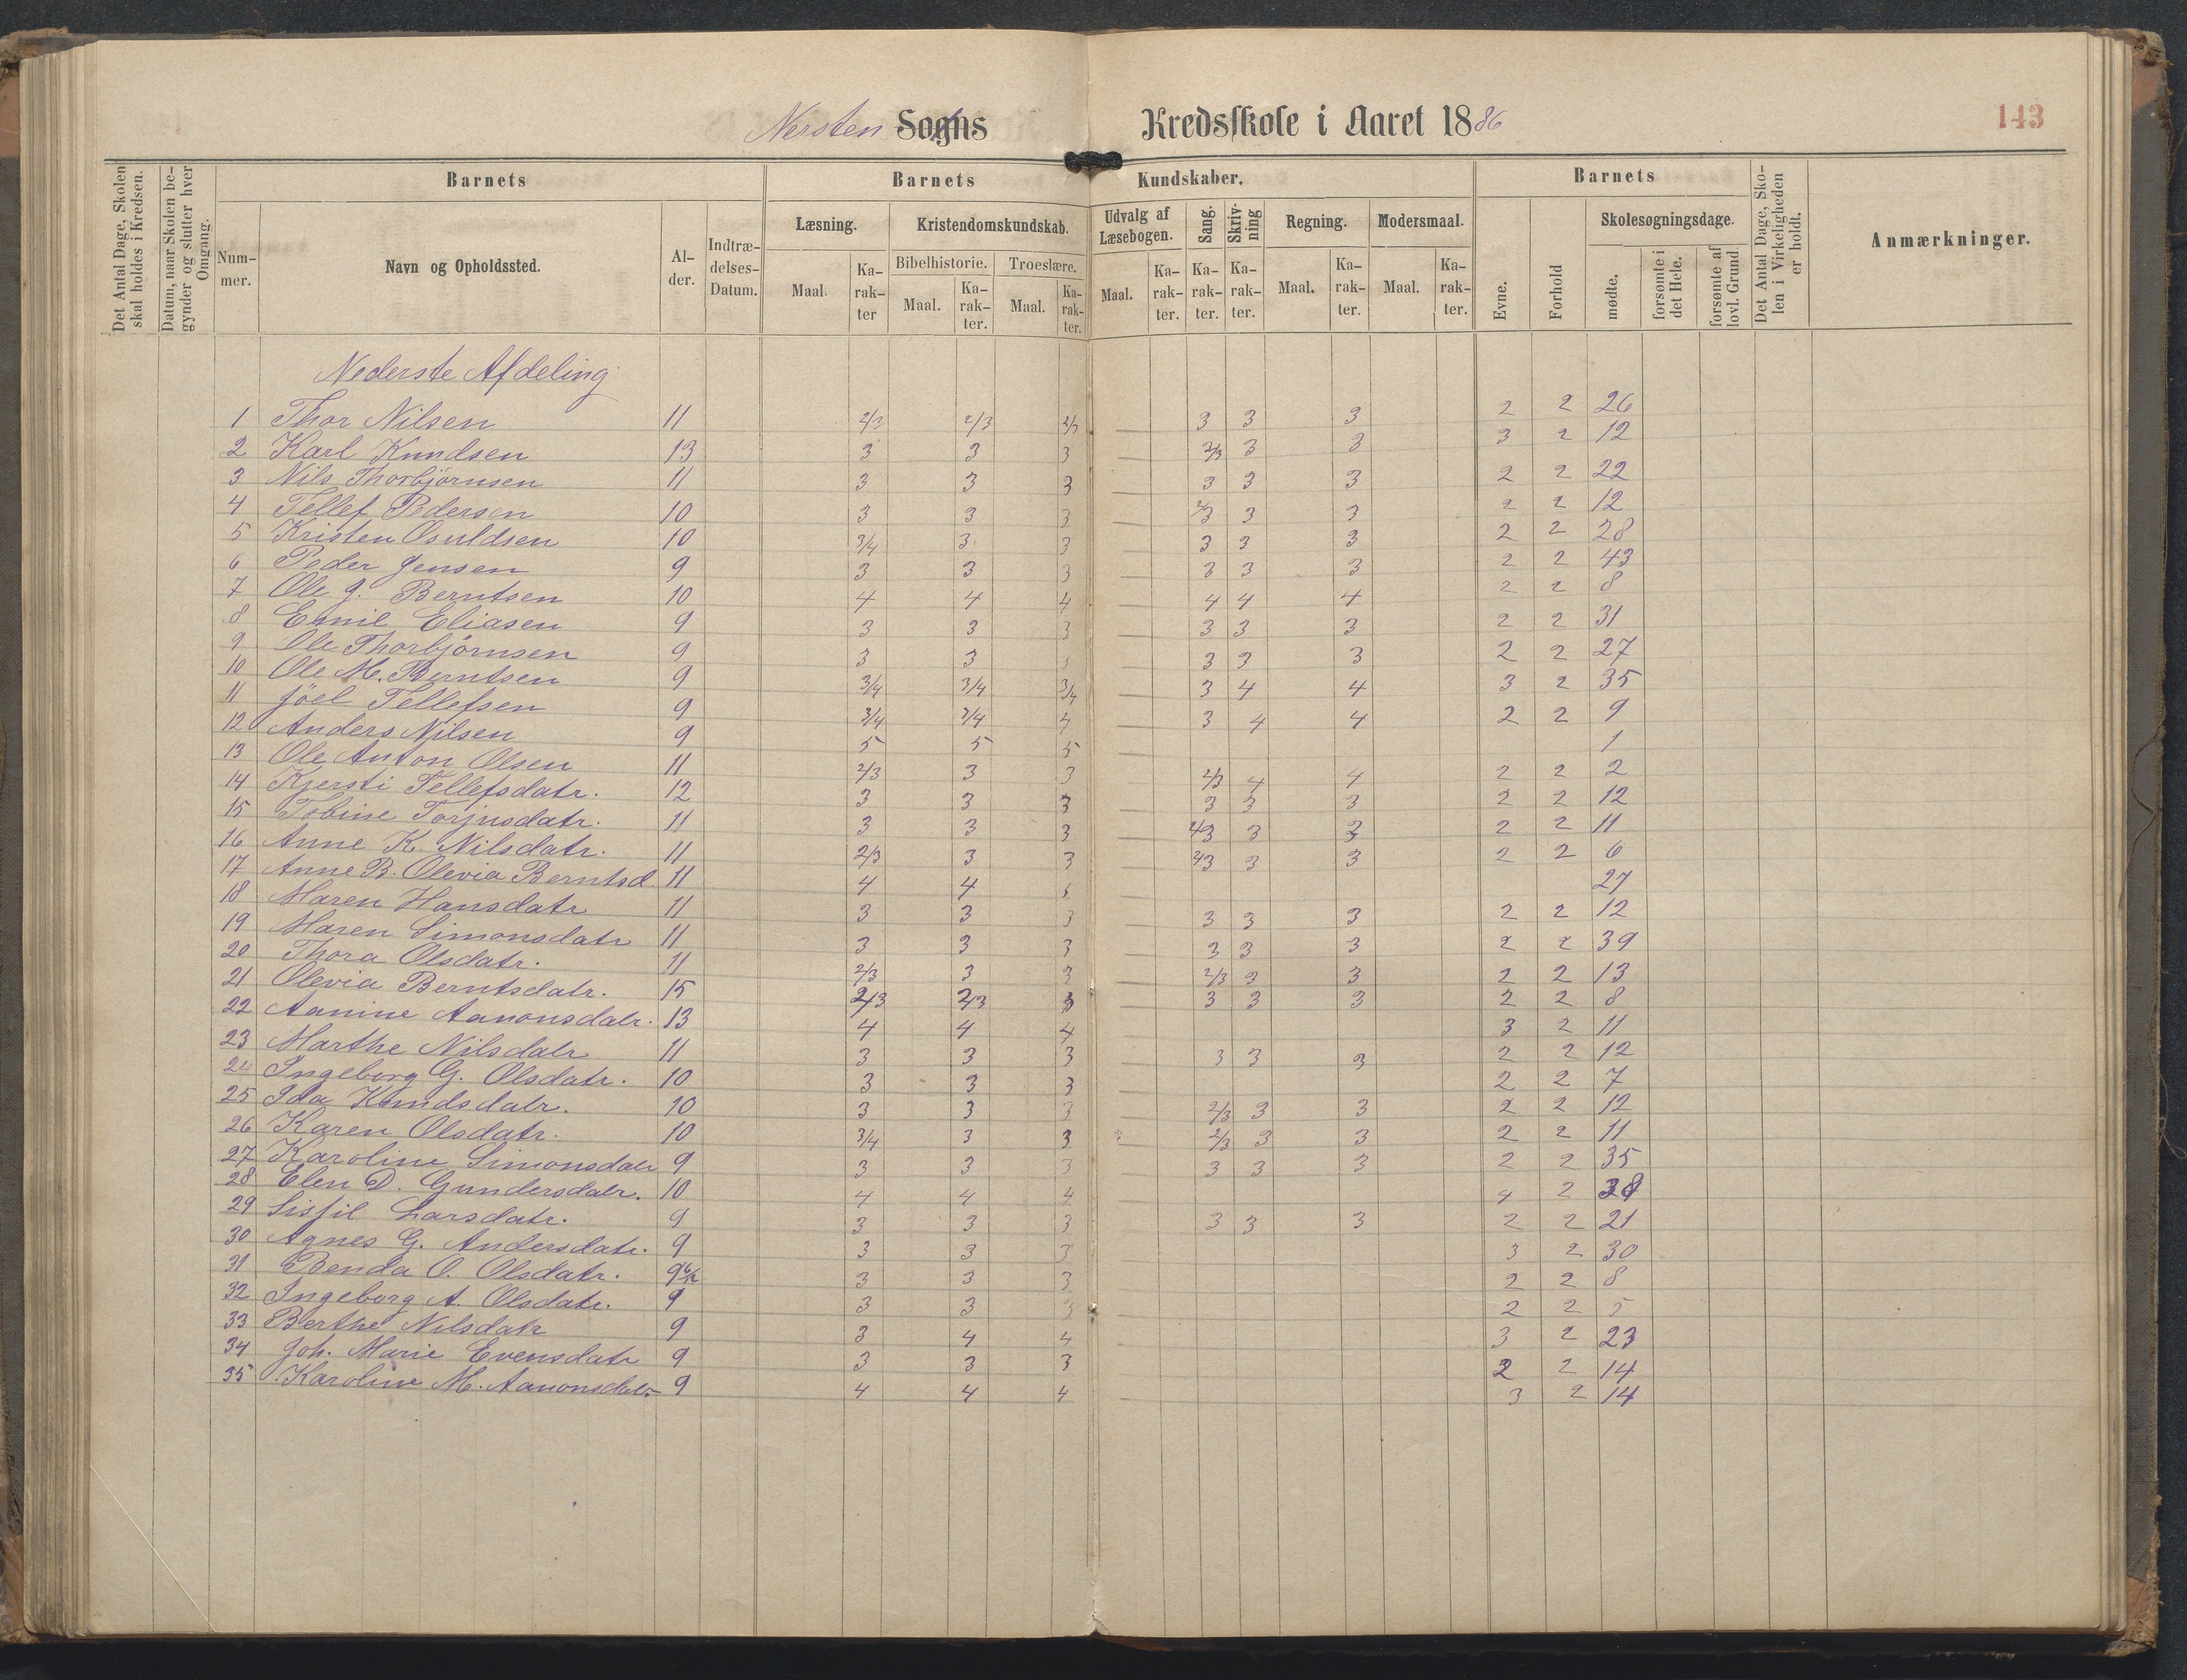 Nersten Sogns Kredsskole i Aaret 1886 143
Det Antal Dage, Skolen skal holdes i Kredsen.
Datum, naar Skolen begynder og slutter hver Omgang.
Barnets Barnets Kundskaber. Barnets
Nummer. Navn og Opholdssted. Alder. Indtrædelses-Datum.
Læsning. Kristendomskundskab. Udvalg af Læsebogen. Sang. Skrivning Regning. Modersmaal. Skolesøgningsdage.
Bibelhistorie. Troeslære.
Maal. Karakter Maal. Karakter. Maal. Karakter. Maal. Karakter. Karakter. Karakter. Maal. Karakter. Maal. Karakter.
Evne. Forhold mødte. forsømte i det Hele. forsømte af lovl. Grund
Det Antal Dage, Skolen i Virkeligheden er holdt.
Anmærkninger.
Nederste Afdeling
1 Thor Nilsen 11 2/3 2/3 2/3 3 3 3 2 2 26
2 Karl Knudsen 13 3 3 3 2/3 3 3 3 2 12
3 Nils Thorbjørnsen 11 3 3 3 3 3 3 2 2 22
4 Tellef Pedersen 10 3 3 3 2/3 3 3 2 2 12
5 Kristen Osuldsen 10 3/4 3 3 3 3 3 2 2 28
6 Peder Jensen 9 3 3 3 3 3 3 2 2 43
7 Ole J. Berntsen 10 4 4 4 4 4 4 2 2 8
8 Emil Eliasen 9 3 3 3 3 3 3 2 2 31
9 Ole Thorbjørnsen 9 3 3 3 3 3 3 2 2 27
10 Ole M. Berntsen 9 3/4 3/4 3/4 3 4 4 3 2 35
11 Joel Tellefsen 9 3/4 3/4 4 3 4 4 2 2 9
12 Anders Nilsen 9 5 5 5 1
13 Ole Anton Olsen 11 2/3 3 3 2/3 4 4 2 2 2
14 Kjersti Tellefsdatr. 12 3 3 3 3 3 3 2 2 12
15 Tobine Torjusdatr. 11 3 3 3 2/3 3 3 2 2 11
16 Anne K. Nilsdatr. 11 2/3 3 3 2/3 3 3 2 2 6
17 Anne B. Olevia Berntsd. 11 4 4 27
18 Maren Hansdatr 11 3 3 3 3 3 3 2 2 12
19 Maren Simonsdatr 11 3 3 3 3 3 3 2 2 39
20 Thora Olsdatr. 11 2/3 3 3 2/3 3 3 2 2 13
21 Olevia Berntsdatr. 15 2/3 2/3 3 3 3 3 2 2 8
22 Aanine Aanonsdatr. 13 4 4 4 3 2 11
23 Marthe Nilsdatr 11 3 3 3 3 3 3 2 2 12
24 Ingeborg G. Olsdatr. 10 3 3 3 2 2 7
25 Ida Knudsdatr. 10 3 3 3 2/3 3 3 2 2 12
26 Karen Olsdatr. 10 3/4 3 3 2/3 3 3 2 2 11
27 Karoline Simonsdatr 9 3 3 3 3 3 3 2 2 35
28 Elen D. Gundersdatr. 10 4 4 4 4 2
29 Sisfil Larsdatr. 9 3 3 3 3 3 3 2 2 21
30 Agnes G. Andersdatr. 9 3 3 3 3 2 30
31 Benda O. Olsdatr. 9 3 3 3 2 2 8
32 Ingeborg A. Olsdatr. 9 3 3 3 2 2 5
33 Berthe Nilsdatr 9 3 4 4 3 2 23
34 Joh. Marie Evensdatr 9 3 3 3 2 2 14
35 Karoline M. Aanonsdatr 9 4 4 4 3 2 14